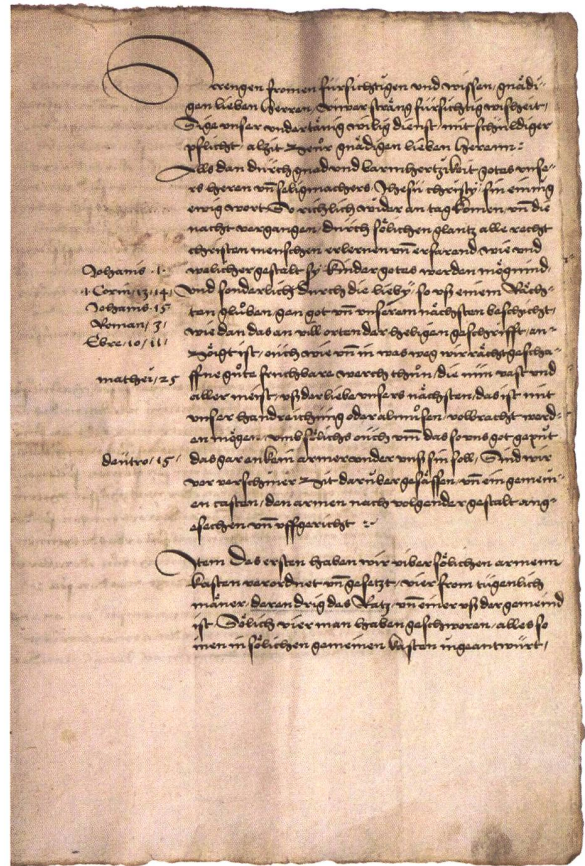 Strengen fromen fürsichtigen und wissen, gnädi-
gen lieben herren, üwer sträng fürsichtig wisheit,
Sige unser undertänig wilig dienst, mit schuldiger
pflicht, alzit zuor gnädigen lieben herenn:
Als dan durch gnad und barmhertzikeit gotes unse-
rs heren und säligmachers Jhesu christy, sin eining
ewig wort So richlich wider an tag komen, und die
nacht vergangen, durch sölichen glantz alle recht
christen menschen erlernen und erfarend wie und
Johanis ·1· welicher gestalt sy kinder gotes werden mögind,
1 Corin, 13, 14, Und sonderlich durch die lieby, so uß einem Räch-
Johanis 15 ten glüben, gen got und unserem nächsten beschicht,
Roman, 3, wie dan das an vill orten der heligen geschrifft, an-
Ebre, 10, 11, zögt ist, ouch wie und in was wäg wir rächtgescha-
ffne güte fruchbare werch thün, die nun vast und
mathei, 25 aller meist, uß der liebe unsers nächsten, das ist mit
unser handreichung oder almüsen volbracht werd-
en mögen, umb sölichs ouch und das so uns got gepüt
deutro, 15, das gar enkein armer under unß sin soll, Sind wir
vor verschiner zit darüber gesässen, und ein gemein-
en casten, den armen nach volgender gestalt ang-
esechen und uffgericht :~
Item Des ersten haben wir über sölichen armenn
kasten verordnet und gesetzt, vier from tugenlich
mäner, deren drig des Ratz, und einer uß der gemeind
ist, Sölich vier man haben geschworen, alles so
inen in sölichen gemeinen kasten ingeantwürt,